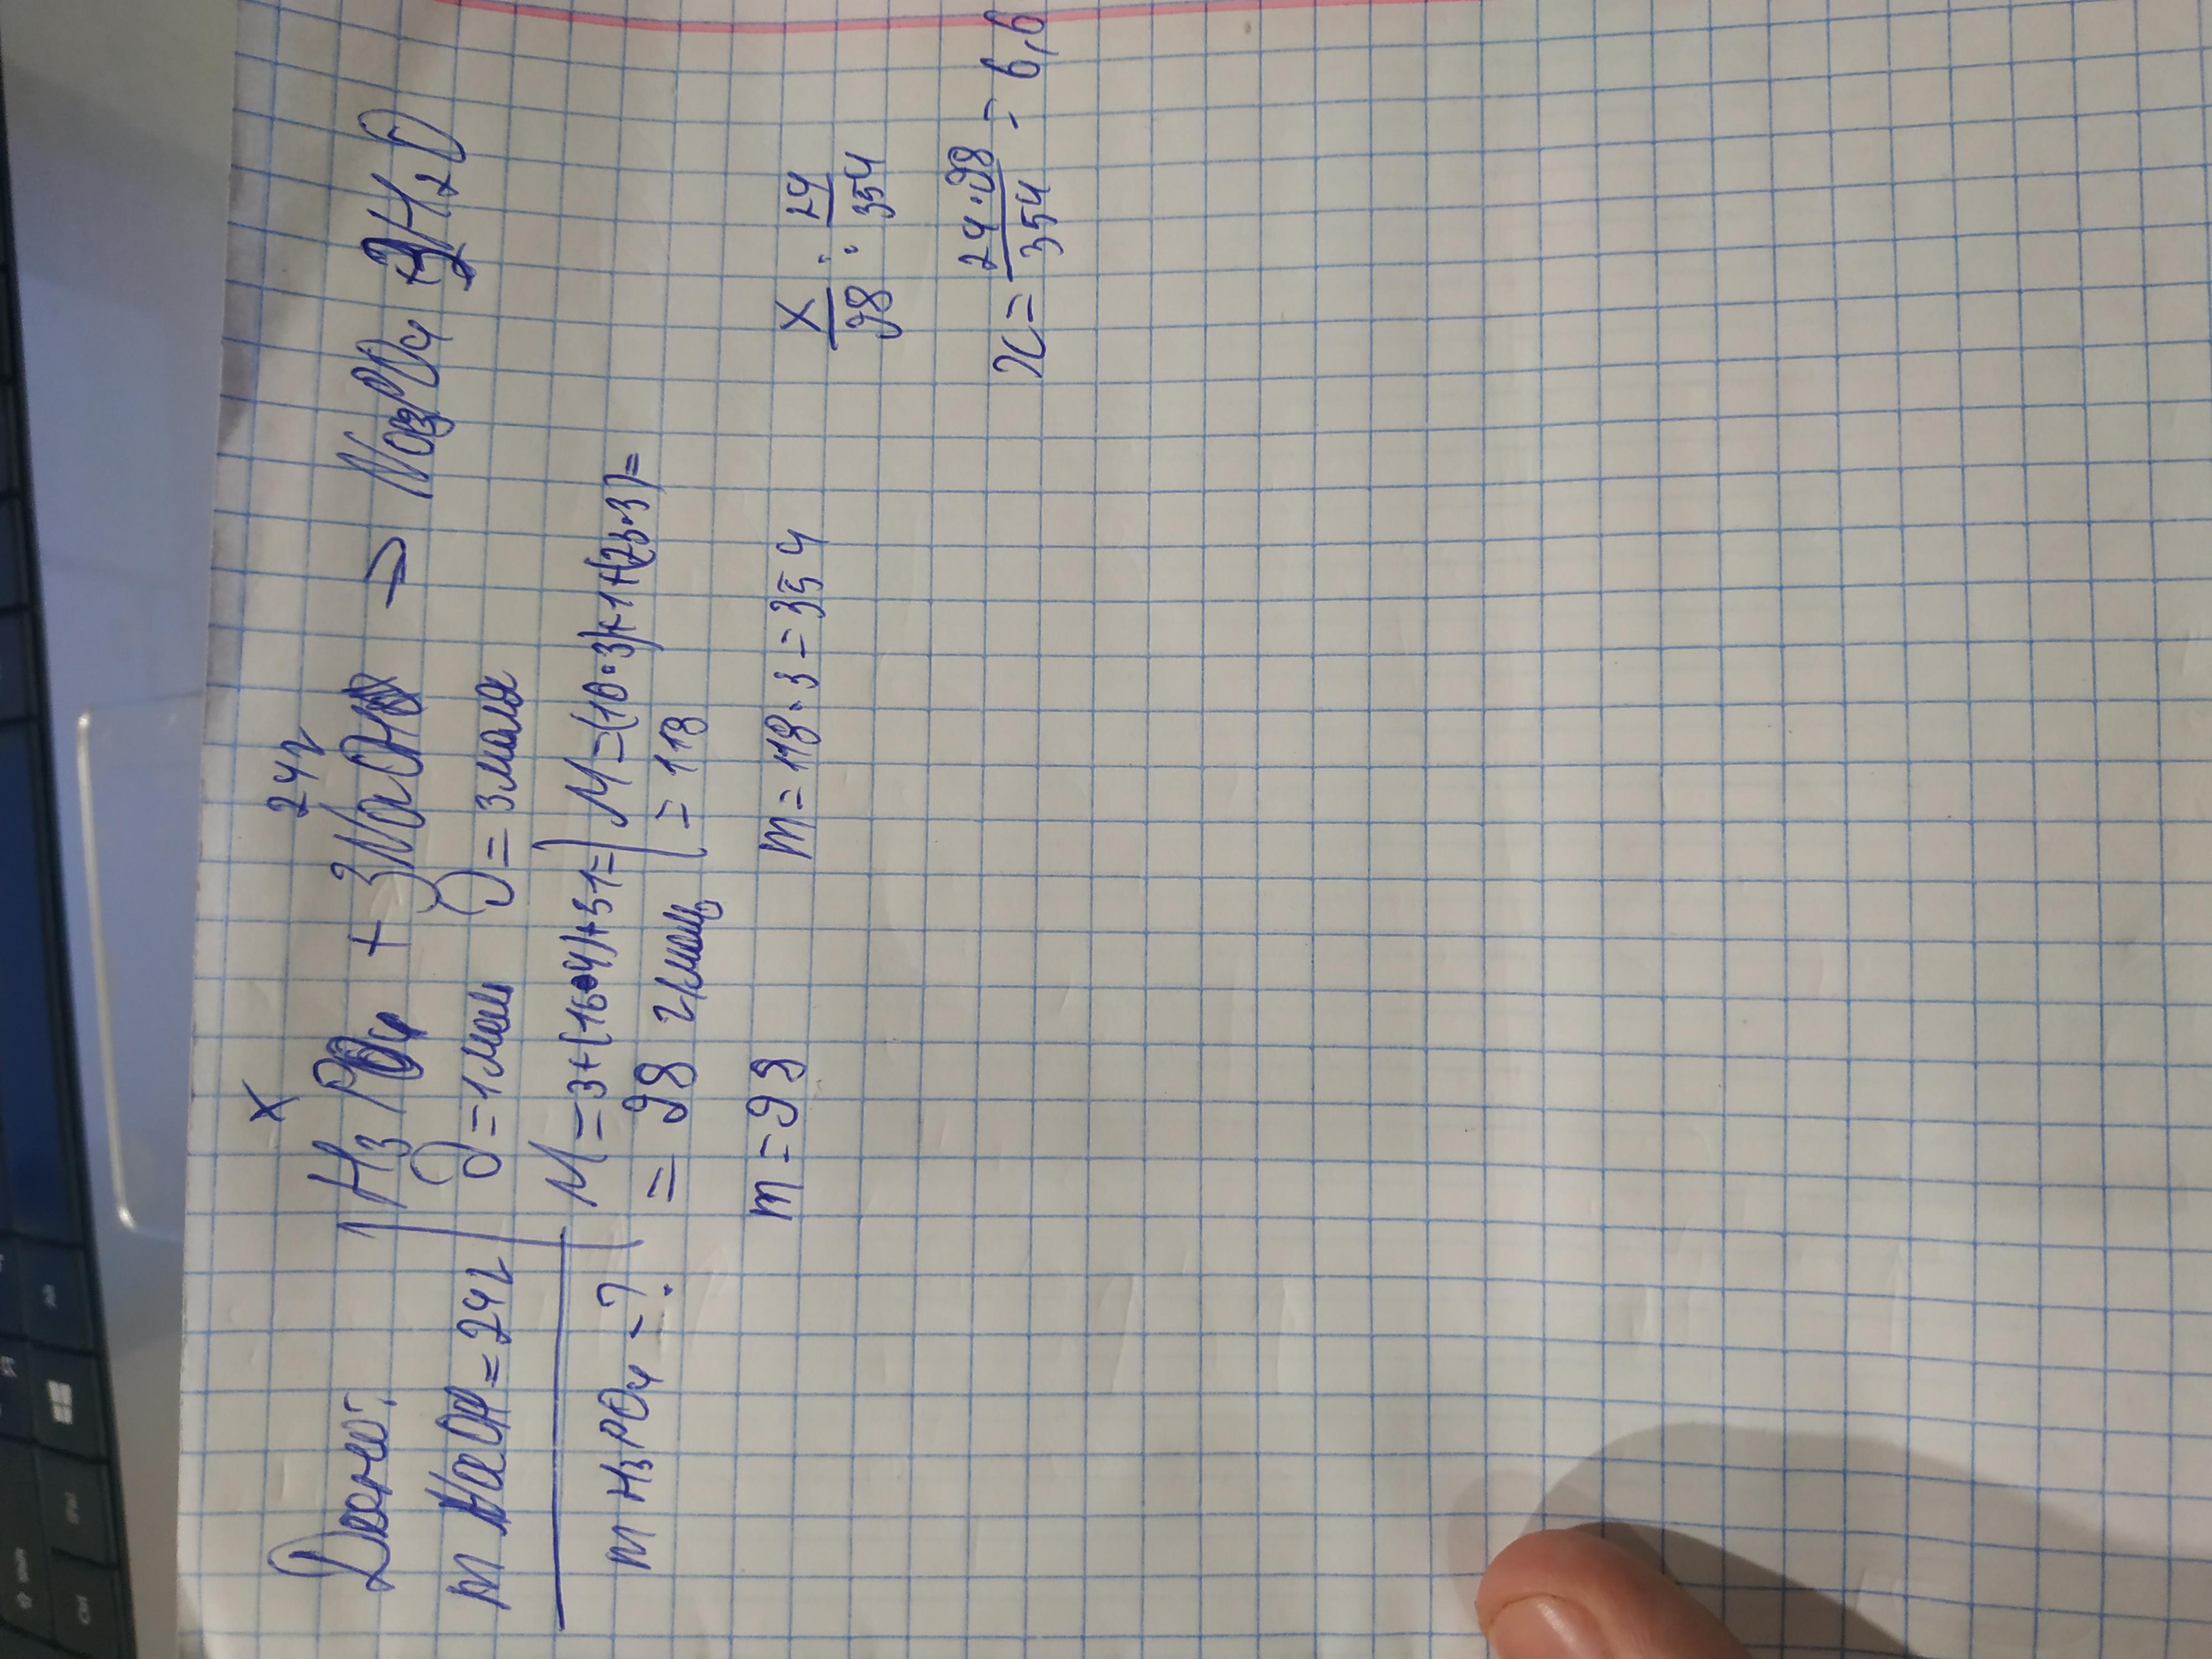 Дано:
m NaOH = 24г
m H₃PO₄ - ?
x 24г
H₃PO₄ + 3NaOH → Na₃PO₄ + 3H₂O
ν = 1 моль ν = 3 моля
M = 3 + (16·4) + 31 = M = (16·3) + 1 + (23·3) =
= 98 г/моль = 118
m = 98 m = 118 · 3 = 354
x/98 : 24/354
x = 24·98/354 = 6,6